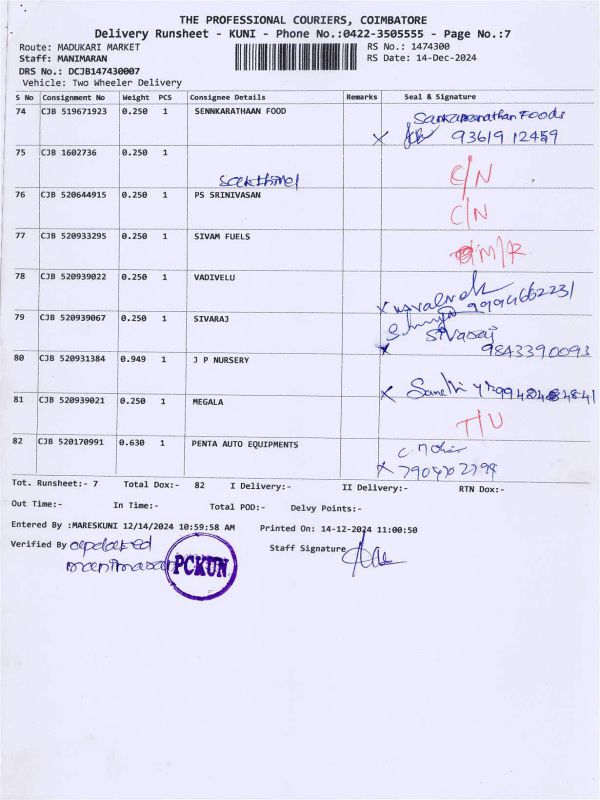 THE PROFESSIONAL COURIERS, COIMBATORE
Delivery Runsheet - KUNI - Phone No.:0422-3505555 - Page No.:7
Route: MADUKARI MARKET RS No.: 1474300
Staff: MANIMARAN RS Date: 14-Dec-2024
DRS No.: DCJB147430007
Vehicle: Two Wheeler Delivery
S No Consignment No Weight PCS Consignee Details Remarks Seal & Signature
74 CJB 519671923 0.250 1 SENNKARATHAAN FOOD
X 93619 12459
75 CJB 1602736 0.250 1 C/N
76 CJB 520644915 0.250 1 PS SRINIVASAN C/N
77 CJB 520933295 0.250 1 SIVAM FUELS M/R
78 CJB 520939022 0.250 1 VADIVELU
79 CJB 520939067 0.250 1 SIVARAJ Sivaraj
9843390093
80 CJB 520931384 0.949 1 J P NURSERY
81 CJB 520939021 0.250 1 MEGALA T/U
82 CJB 520170991 0.630 1 PENTA AUTO EQUIPMENTS
Tot. Runsheet:- 7 Total Dox:- 82 I Delivery:- II Delivery:- RTN Dox:-
Out Time:- In Time:- Total POD:- Delvy Points:-
Entered By :MARESKUNI 12/14/2024 10:59:58 AM Printed On: 14-12-2024 11:00:50
Verified By updated Staff Signature
manimaran PCKUN